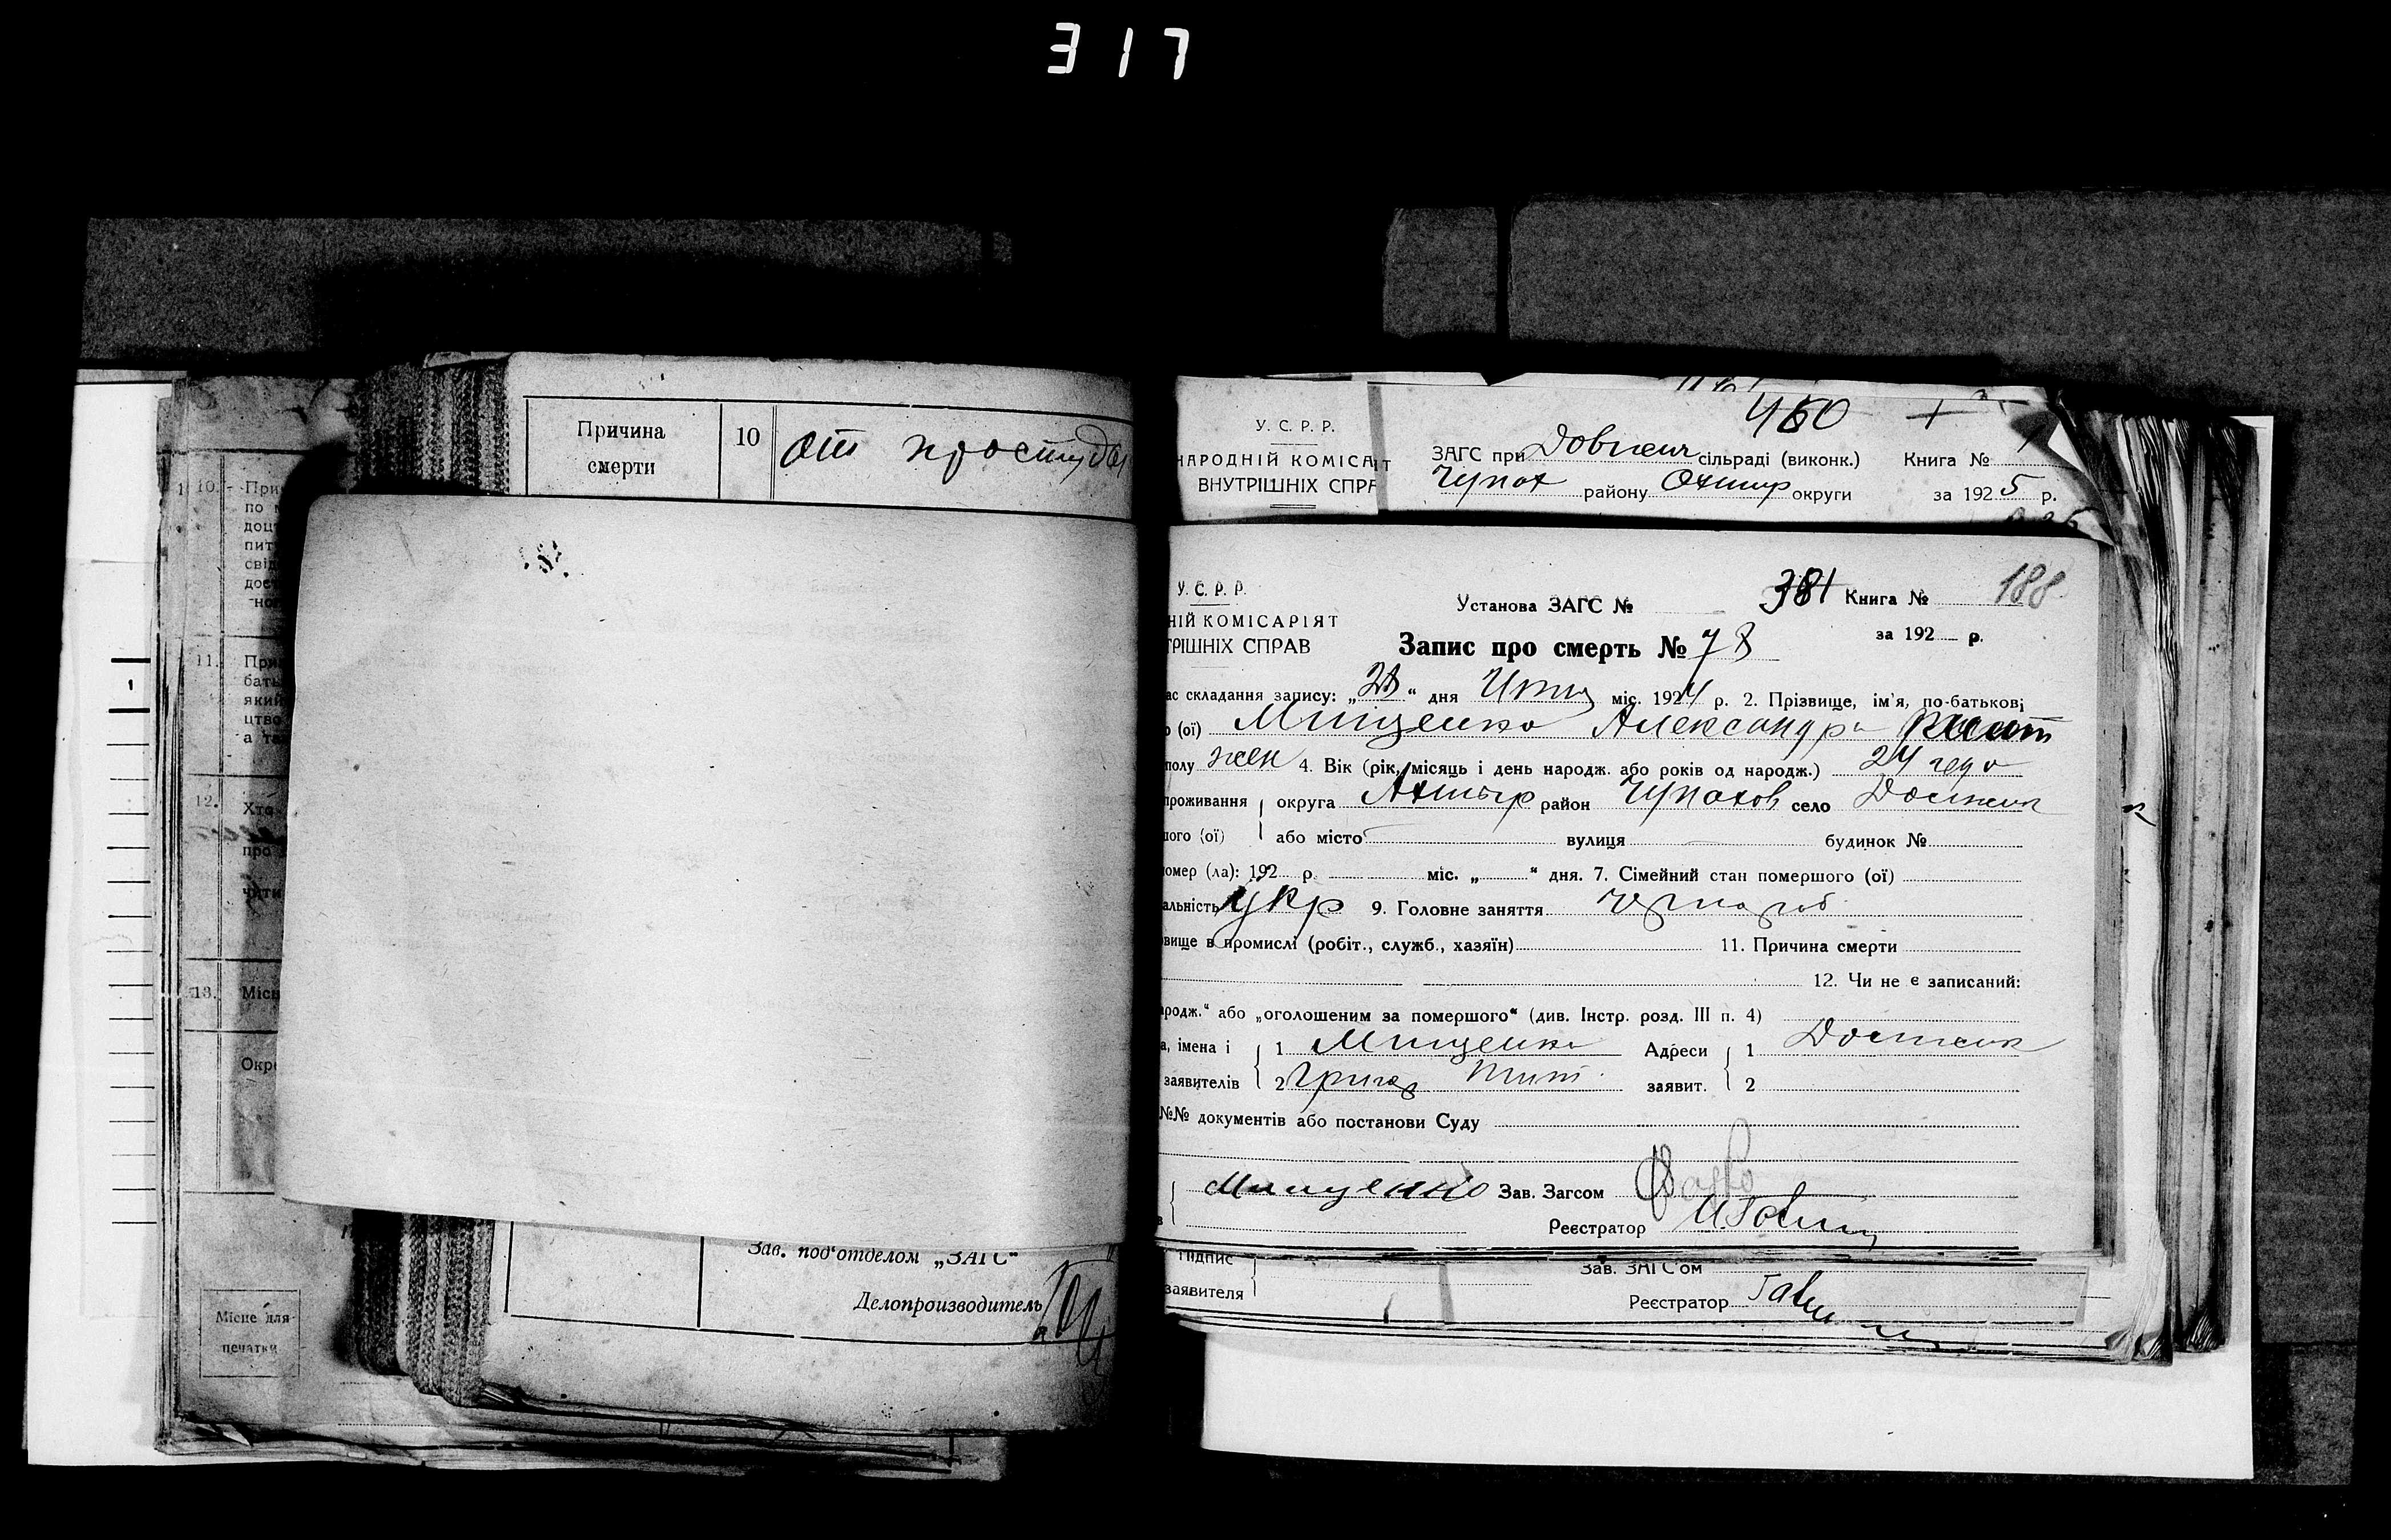 317
Причина
смерти
10
от простуды
10. При
по
доц
пит
сві
дос
но
11. При
бать
який
цтво
а та
12. Хто
про
чити
13. Місц
Окр
Місце для
печатки
Зав. под'отделом „ЗАГС"
Делопроизводитель
У. С. Р. Р.
НАРОДНІЙ КОМІСА
ВНУТРІШНІХ СПР
460 +
ЗАГС при Довжик сільраді (виконк.) Книга № 1
Чупах району Охтир округи за 1925 р.
У. С. Р. Р.
НІЙ КОМІСАРІЯТ
ТРІШНІХ СПРАВ
Установа ЗАГС № 381 Книга № 188
Запис про смерть № 78 за 192 р.
ас складання запису: „28" дня міс. 1924 р. 2. Прізвище, ім'я, по-батькові
о (ої) Мищенко Александра
полу жен 4. Вік (рік, місяць і день народж. або років од народж.) 24 года
проживання округа Ахтыр район Чупахов село Должик
ого (ої) або місто вулиця будинок №
омер (ла): 192 р. міс. „ " дня. 7. Сімейний стан помершого (ої)
альність Укр 9. Головне заняття
вище в промислі (робіт., служб., хазяїн) 11. Причина смерти
12. Чи не є записаний:
родж." або „оголошеним за помершого" (див. Інстр. розд. III п. 4)
а, імена і 1 Мищенко Адреси 1 Должик
заявителів 2 Григор Тит заявит. 2
№№ документів або постанови Суду
Мищенко Зав. Загсом
Реєстратор
Підпис
заявителя
Зав. ЗАГС'ом
Реєстратор